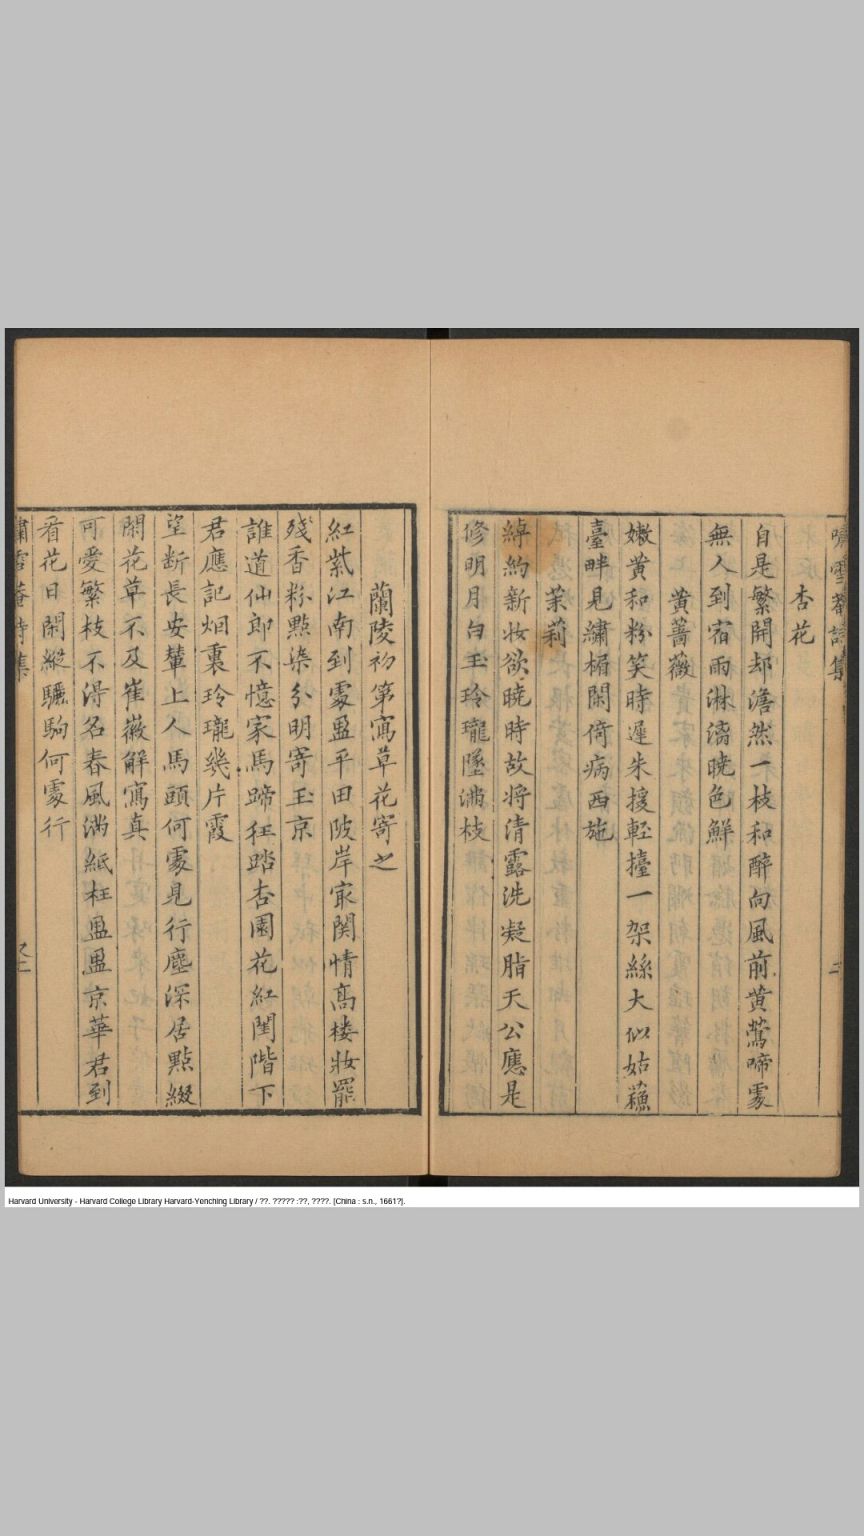 嘯雪菴詩集
杏花
自是繁開却澹然一枝和醉向風前黄鶯啼處
無人到宿雨淋漓曉色鮮
黄薔薇
嫩黄和粉笑時遲朱援輕擡一架絲大似姑蘓
臺畔見繡楣閑倚病西施
茉莉
綽約新妝欲曉時故将清露洗凝脂天公應是
修明月白玉玲瓏墜滿枝
蘭陵初第寫草花寄之
紅紫江南到處盈平田陂岸寂関情高楼妝罷
殘香粉點染分明寄玉京
誰道仙郎不憶家馬蹄狂踏杏園花紅閨階下
君應記烟裏玲瓏幾片霞
望断長安輦上人馬頭何處見行塵深居點綴
閑花草不及崔薇解寫真
可愛繁枝不得名春風滿紙枉盈盈京華君到
看花日閑縱驪駒何處行
嘯雪菴詩集
Harvard University - Harvard College Library Harvard-Yenching Library / ??. ????? :??, ????. [China : s.n., 1661?].